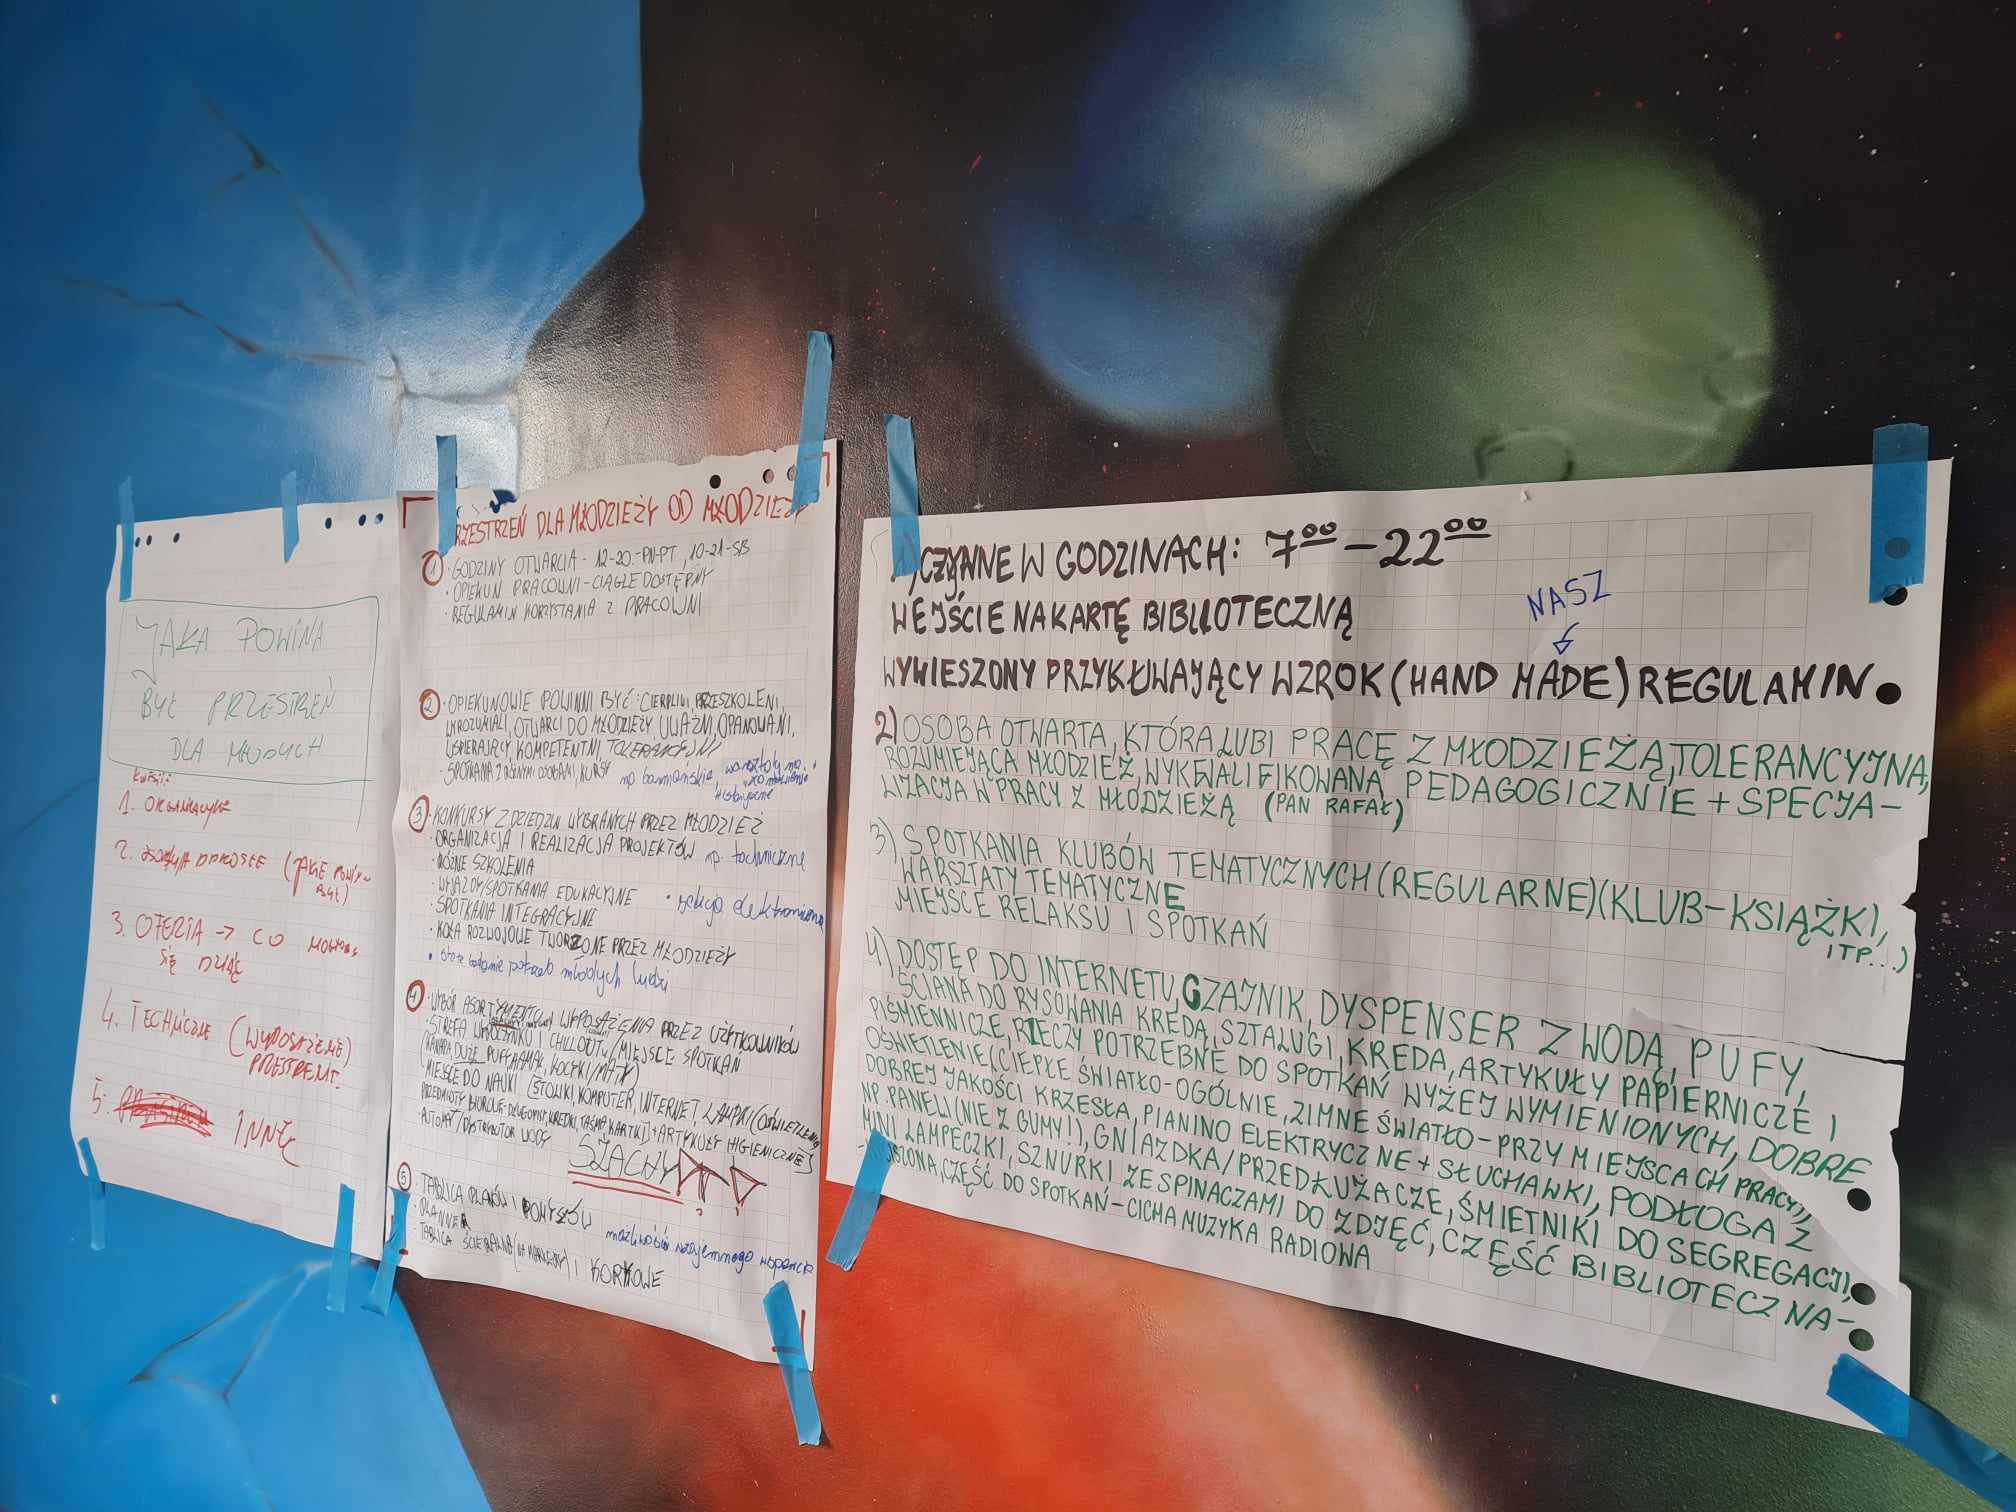 JAKA POWINA
BYĆ PRZESTRZEŃ
DLA MŁODYCH
1. ORGANIZACYJNE
2. DOROSŁE (JAKIE POWIN-
BYĆ)
3. OFERTA → CO
SIĘ DZIAĆ
4. TECHNICZNE (WYPOSAŻENIE)
PRZESTRZENI.
5. INNE
RZESTRZEŃ DLA MŁODZIEŻY OD MŁODZIEŻY
1 · GODZINY OTWARCIA - 12-20.-PN-PT, 10-21-SB
· OPIEKUN PRACOWNI - CIĄGLE DOSTĘPNY
· REGULAMIN KORZYSTANIA Z PRACOWNI
2 · OPIEKUNOWIE POWINNI BYĆ: CIERPLIWI, PRZESZKOLENI,
WYROZUMIALI, OTWARCI DO MŁODZIEŻY, UWAŻNI, OPANOWANI,
WSPIERAJĄCY KOMPETENTNI, TOLERANCYJNI
· SPOTKANIA Z RÓŻNYMI OSOBAMI, KURSY np barmańskie, warsztaty np.
3 · KONKURSY Z DZIEDZIN WYBRANYCH PRZEZ MŁODZIEŻ
· ORGANIZACJA I REALIZACJA PROJEKTÓW np. techniczne
· RÓŻNE SZKOLENIA
· WYJAZDY/SPOTKANIA EDUKACYJNE · sekcja elektroniczna
· SPOTKANIA INTEGRACYJNE
· KOŁA ROZWOJOWE TWORZONE PRZEZ MŁODZIEŻ
· stałe badanie potrzeb młodych ludzi
4 · WYBÓR ASORTYMENTU WYPOSAŻENIA PRZEZ UŻYTKOWNIKÓW
· STREFA WYPOCZYNKU I CHILLOUTU/MIEJSCE SPOTKAŃ
(KANAPA DUŻE, PUFY, HAMAK, KOCYKI/MATY)
· MIEJSCE DO NAUKI (STOLIKI, KOMPUTER, INTERNET, LAMPKI (OŚWIETLENIE)
PRZEDMIOTY BIUROWE-DŁUGOPISY, KREDKI, TAŚMA, KARTKI) + ARTYKUŁY HIGIENICZNE)
· AUTOMAT/DYSTRYBUTOR WODY
SZACHY
5 · TABLICA PLANÓW I POMYSŁÓW
· PLANNER możliwości wzajemnego wsparcia
· TABLICA ŚCIERALNA (NA MARKERY) I KORKOWE
1) CZYNNE W GODZINACH: 7⁰⁰ – 22⁰⁰
WEJŚCIE NA KARTĘ BIBLIOTECZNĄ
NASZ
WYWIESZONY PRZYKŁUWAJĄCY WZROK (HAND MADE) REGULAMIN.
2) OSOBA OTWARTA, KTÓRA LUBI PRACĘ Z MŁODZIEŻĄ, TOLERANCYJNA,
ROZUMIEJĄCA MŁODZIEŻ, WYKWALIFIKOWANA PEDAGOGICZNIE + SPECJA-
LIZACJA W PRACY Z MŁODZIEŻĄ (PAN RAFAŁ)
3) SPOTKANIA KLUBÓW TEMATYCZNYCH (REGULARNE) (KLUB-KSIĄŻKI,
ITP...)
WARSZTATY TEMATYCZNE
MIEJSCE RELAKSU I SPOTKAŃ
4) DOSTĘP DO INTERNETU, CZAJNIK, DYSPENSER Z WODĄ, PUFY,
ŚCIANA DO RYSOWANIA KREDĄ, SZTALUGI, KREDA, ARTYKUŁY PAPIERNICZE I
PIŚMIENNICZE, RZECZY POTRZEBNE DO SPOTKAŃ WYŻEJ WYMIENIONYCH, DOBRE
OŚWIETLENIE (CIEPŁE ŚWIATŁO-OGÓLNIE, ZIMNE ŚWIATŁO-PRZY MIEJSCACH PRACY),
DOBREJ JAKOŚCI KRZESŁA, PIANINO ELEKTRYCZNE + SŁUCHAWKI, PODŁOGA Z
NP. PANELI (NIE Z GUMY!), GNIAZDKA/PRZEDŁUŻACZE, ŚMIETNIKI DO SEGREGACJI,
MINI LAMPECZKI, SZNURKI ZE SPINACZAMI DO ZDJĘĆ, CZĘŚĆ BIBLIOTECZNA-
CZĘŚĆ DO SPOTKAŃ - CICHA MUZYKA RADIOWA